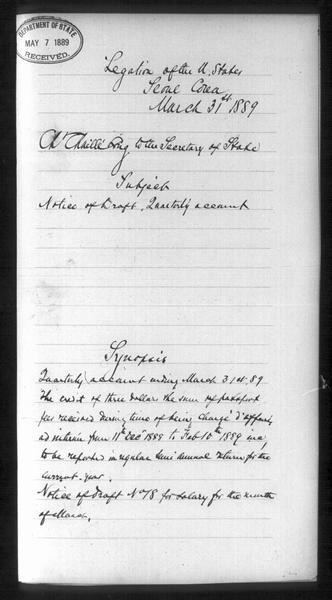 DEPARTMENT OF STATE
MAY 7 1889
RECEIVED.
Legation of the U. States
Seoul Corea
March 31st 1889
to the Secretary of State
Subject
Notice of Draft, Quarterly account
Synopsis
Quarterly account ending March 31st 89
The credit of three dollars the sum of passport
fees received during time of being Chargé d'affaires
ad interim from 11th Dec 1888 to Feb 10th 1889
to be reported in regular Semi Annual return for the
current year.
Notice of draft No 78 for Salary for the month
of March.